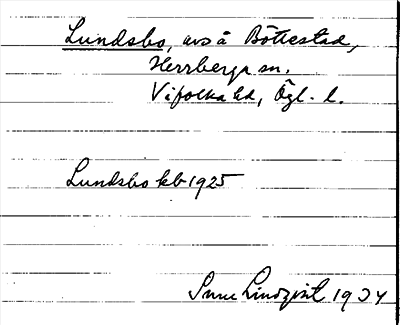 Lundsbo, avs å Bottestad,
Herrberga sn.
Vifolka hd, Ögl. l.
Lundsbo kb 1925
Sune Lindqvist 1934